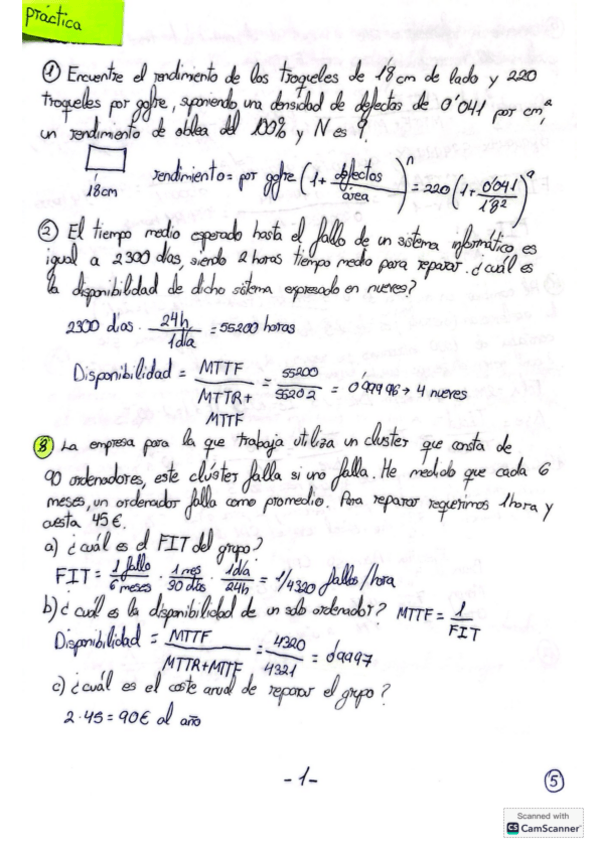 práctica
① Encuentre el rendimiento de los troqueles de 18 cm de lado y 220
troqueles por gofre, suponiendo una densidad de defectos de 0'041 por cm²,
un rendimiento de oblea del 100% y N es 9
18cm
rendimiento = por gofre (1 + defectos / área)^n = 220 (1 + 0'041 / 18²)^9
② El tiempo medio esperado hasta el fallo de un sistema informático es
igual a 2300 días, siendo 2 horas tiempo medio para reparar. ¿cuál es
la disponibilidad de dicho sistema expresado en nueves?
2300 días · 24h / 1día = 55200 horas
Disponibilidad = MTTF / MTTR + MTTF = 55200 / 55202 = 0'99996 → 4 nueves
⑧ La empresa para la que trabaja utiliza un cluster que consta de
90 ordenadores, este clúster falla si uno falla. He medido que cada 6
meses, un ordenador falla como promedio. Para reparar requerimos 1 hora y
cuesta 45 €.
a) ¿cuál es el FIT del grupo?
FIT = 1 fallo / 6 meses · 1 mes / 30 días · 1día / 24h = 1/4320 fallos/hora
b) ¿cuál es la disponibilidad de un solo ordenador? MTTF = 1 / FIT
Disponibilidad = MTTF / MTTR+MTTF = 4320 / 4321 = 0'9997
c) ¿cuál es el coste anual de reparar el grupo?
2·45 = 90€ al año
-1-
⑤
Scanned with
CS CamScanner